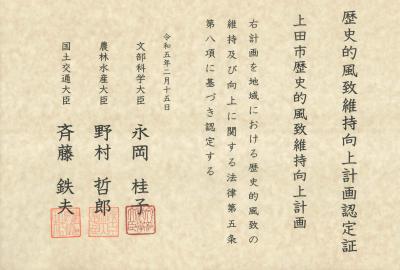 歴史的風致維持向上計画認定証
上田市歴史的風致維持向上計画
右計画を地域における歴史的風致の
維持及び向上に関する法律第五条
第八項に基づき認定する
令和五年二月十五日
文部科学大臣 永岡 桂子
農林水産大臣 野村 哲郎
国土交通大臣 斉藤 鉄夫